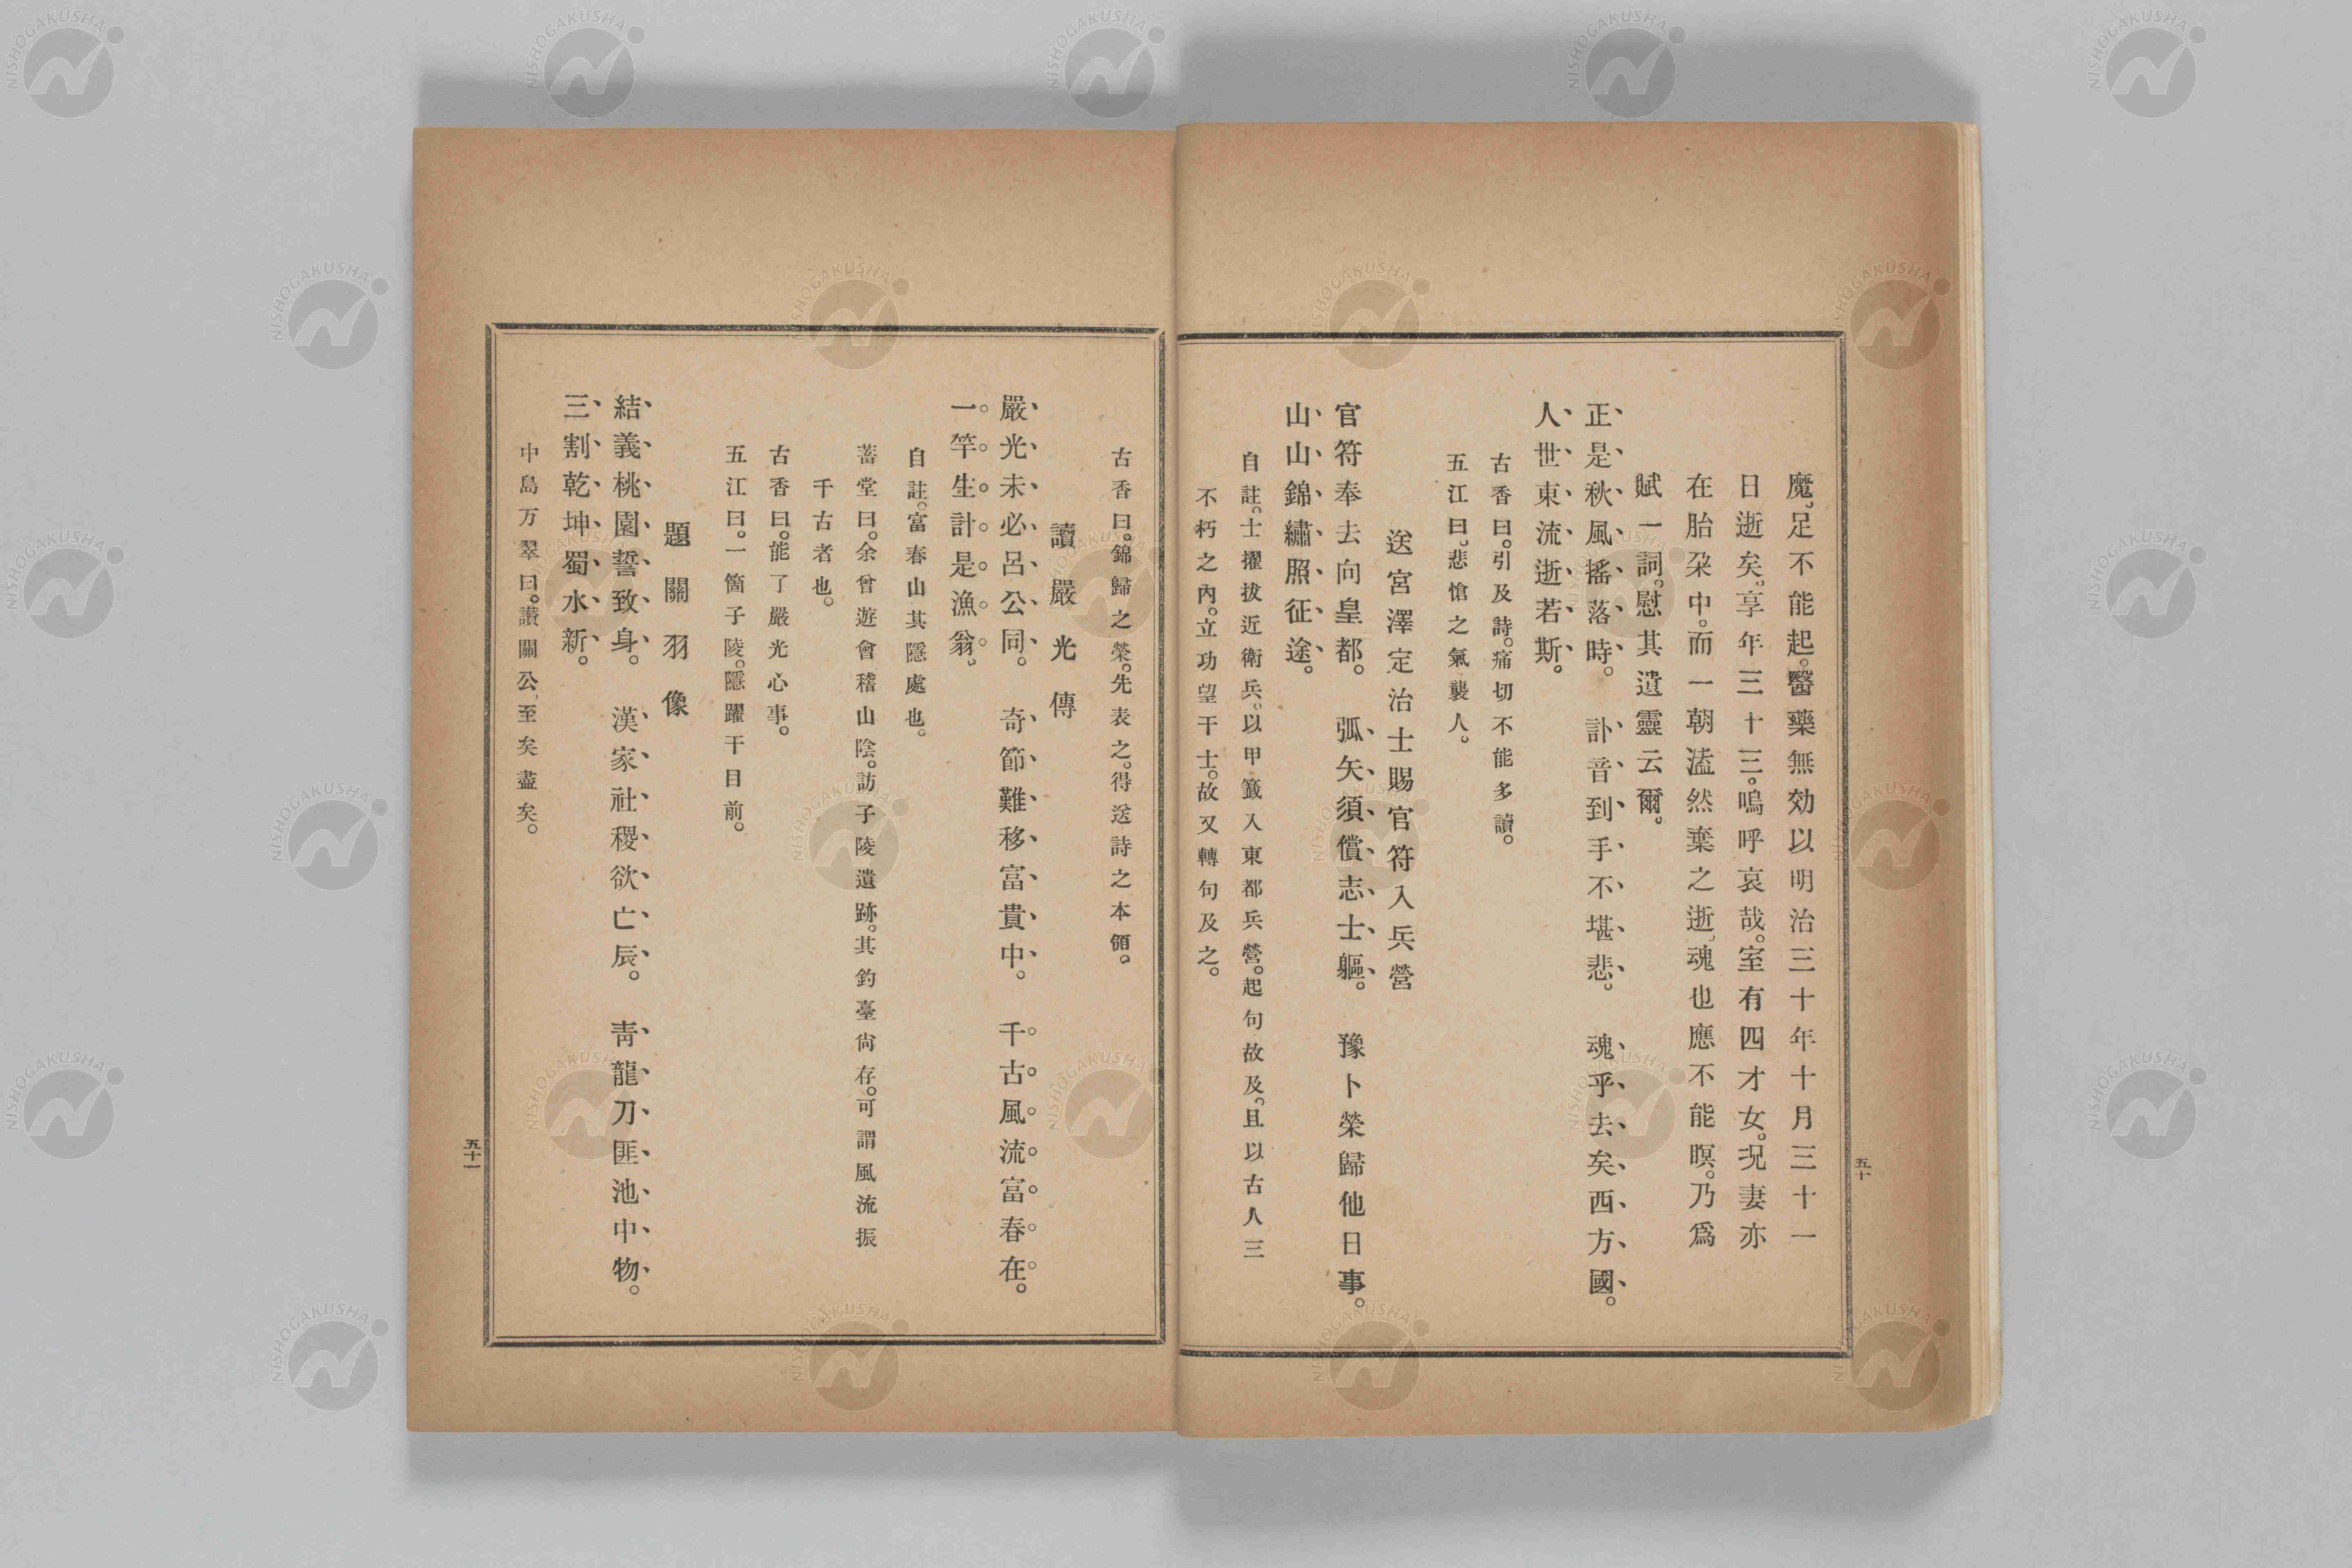 魔、足不能起。醫藥無効以明治三十年十月三十一
日逝矣、享年三十三。嗚呼哀哉。室有四才女。况妻亦
在胎朶中。而一朝溘然棄之逝、魂也應不能瞑。乃爲
賦一詞。慰其遺靈云爾。
正是秋風搖落時。 訃音到手不堪悲。 魂乎去矣西方國。
人世東流逝若斯。
古香曰。引及詩。痛切不能多讀。
五江曰、悲愴之氣襲人。
送宮澤定治士賜官符入兵營
官符奉去向皇都。 弧矢須償志士軀。 豫卜榮歸他日事。
山山錦繡照征途。
自註。士擢拔近衛兵。以甲籤入東都兵營。起句故及。且以古人三
不朽之內。立功望于士。故又轉句及之。
五十
古香曰。錦歸之榮。先表之。得送詩之本領。
讀嚴光傳
嚴光未必呂公同。 奇節難移富貴中。 千古風流富春在。
一竿生計是漁翁。
自註。富春山其隱處也。
蓄堂曰。余曾遊會稽山陰。訪子陵遺跡。其釣臺尙存。可謂風流振
千古者也。
古香曰。能了嚴光心事。
五江曰。一箇子陵。隱躍于目前。
題關羽像
結義桃園誓致身。 漢家社稷欲亡辰。 靑龍刀匪池中物。
三割乾坤蜀水新。
中島万翠曰。讃關公、至矣盡矣。
五十一
NISHOGAKUSHA